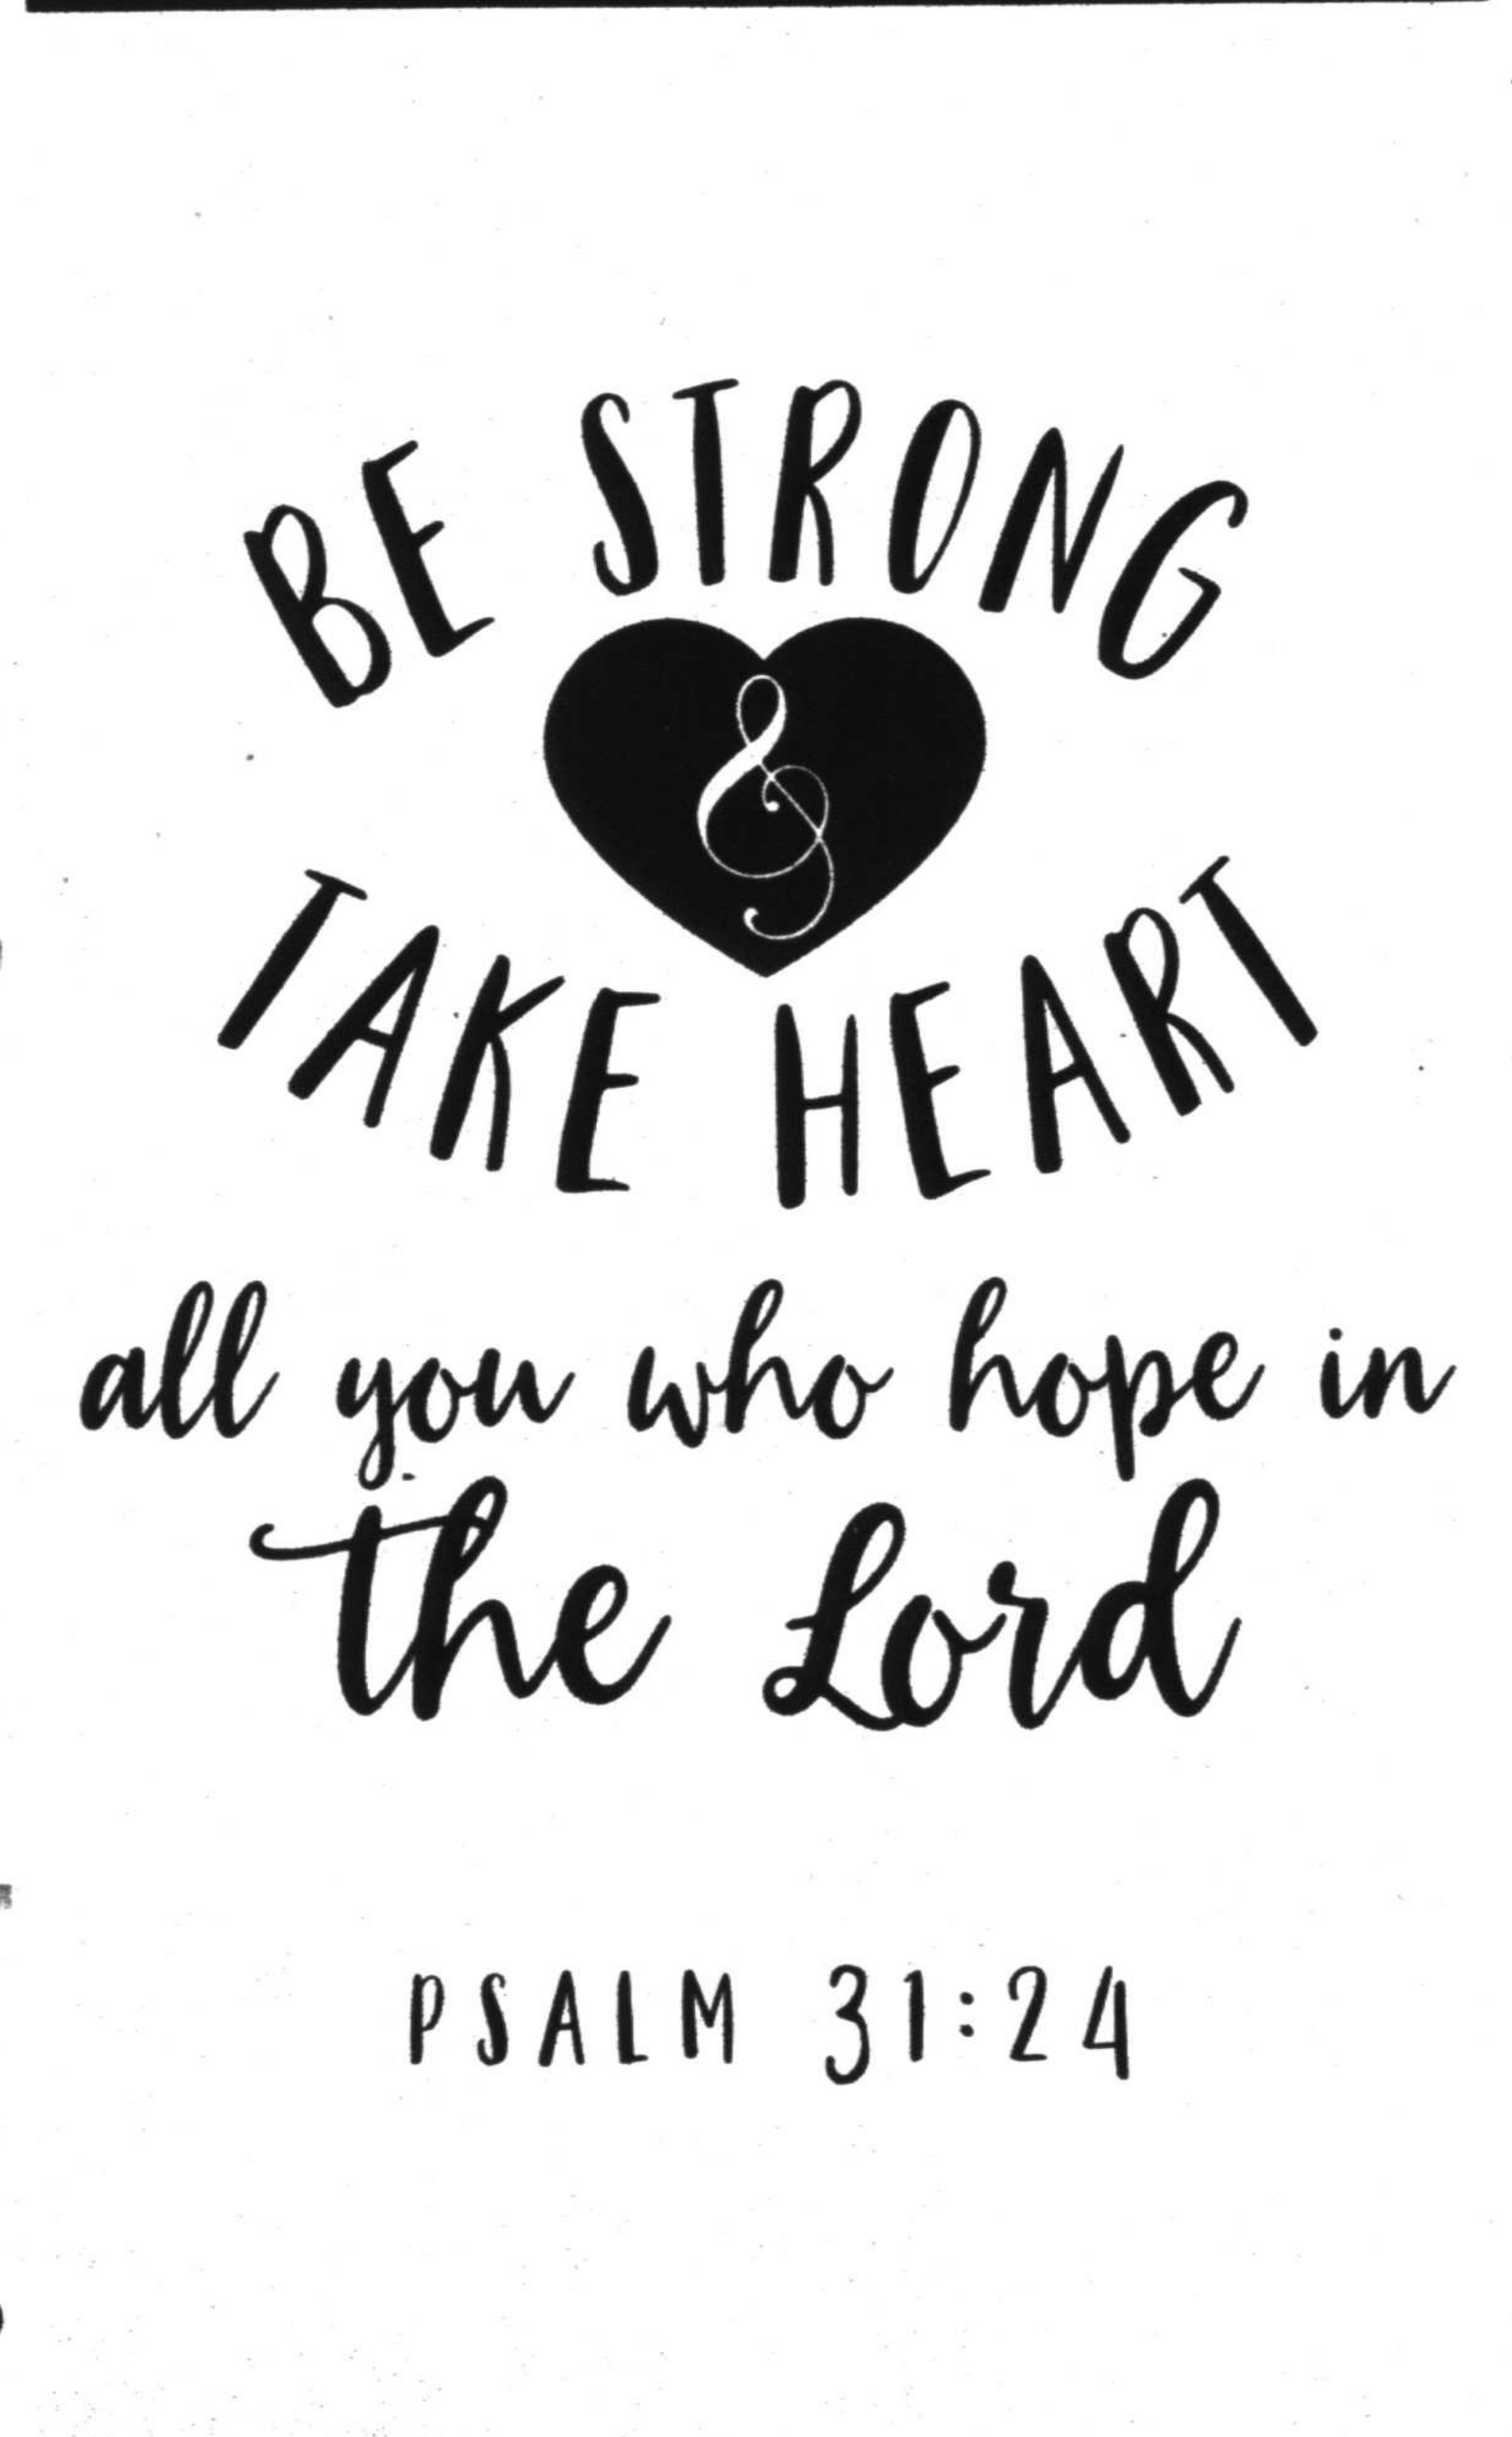 BE STRONG
&
TAKE HEART
all you who hope in
the Lord
PSALM 31:24